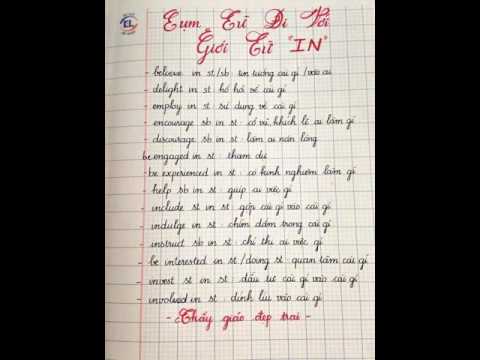 Cụm Từ Đi Với
Giới Từ "IN"
- believe in st/sb : tin tưởng cái gì / vào ai
- delight in st : hồ hởi về cái gì
- employ in st : sử dụng về cái gì
- encourage sb in st : cổ vũ, khích lệ ai làm gì
- discourage sb in st : làm ai nản lòng
be engaged in st : tham dự
- be experienced in st : có kinh nghiệm làm gì
- help sb in st : giúp ai việc gì
- include st in st : gộp cái gì vào cái gì
- indulge in st : chìm đắm trong cái gì
- instruct sb in st : chỉ thị ai việc gì
- be interested in st / doing st : quan tâm cái gì
- invest st in st : đầu tư cái gì vào cái gì
- involved in st : dính líu vào cái gì
- Thầy giáo đẹp trai -